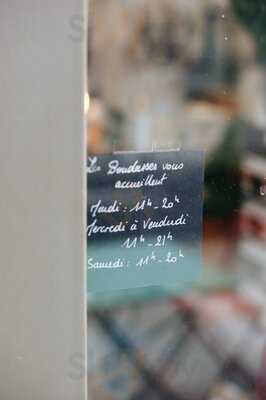 Les Boudasses vous
accueillent
Mardi : 11h - 20h
Mercredi à Vendredi
11h - 21h
Samedi : 11h - 20h